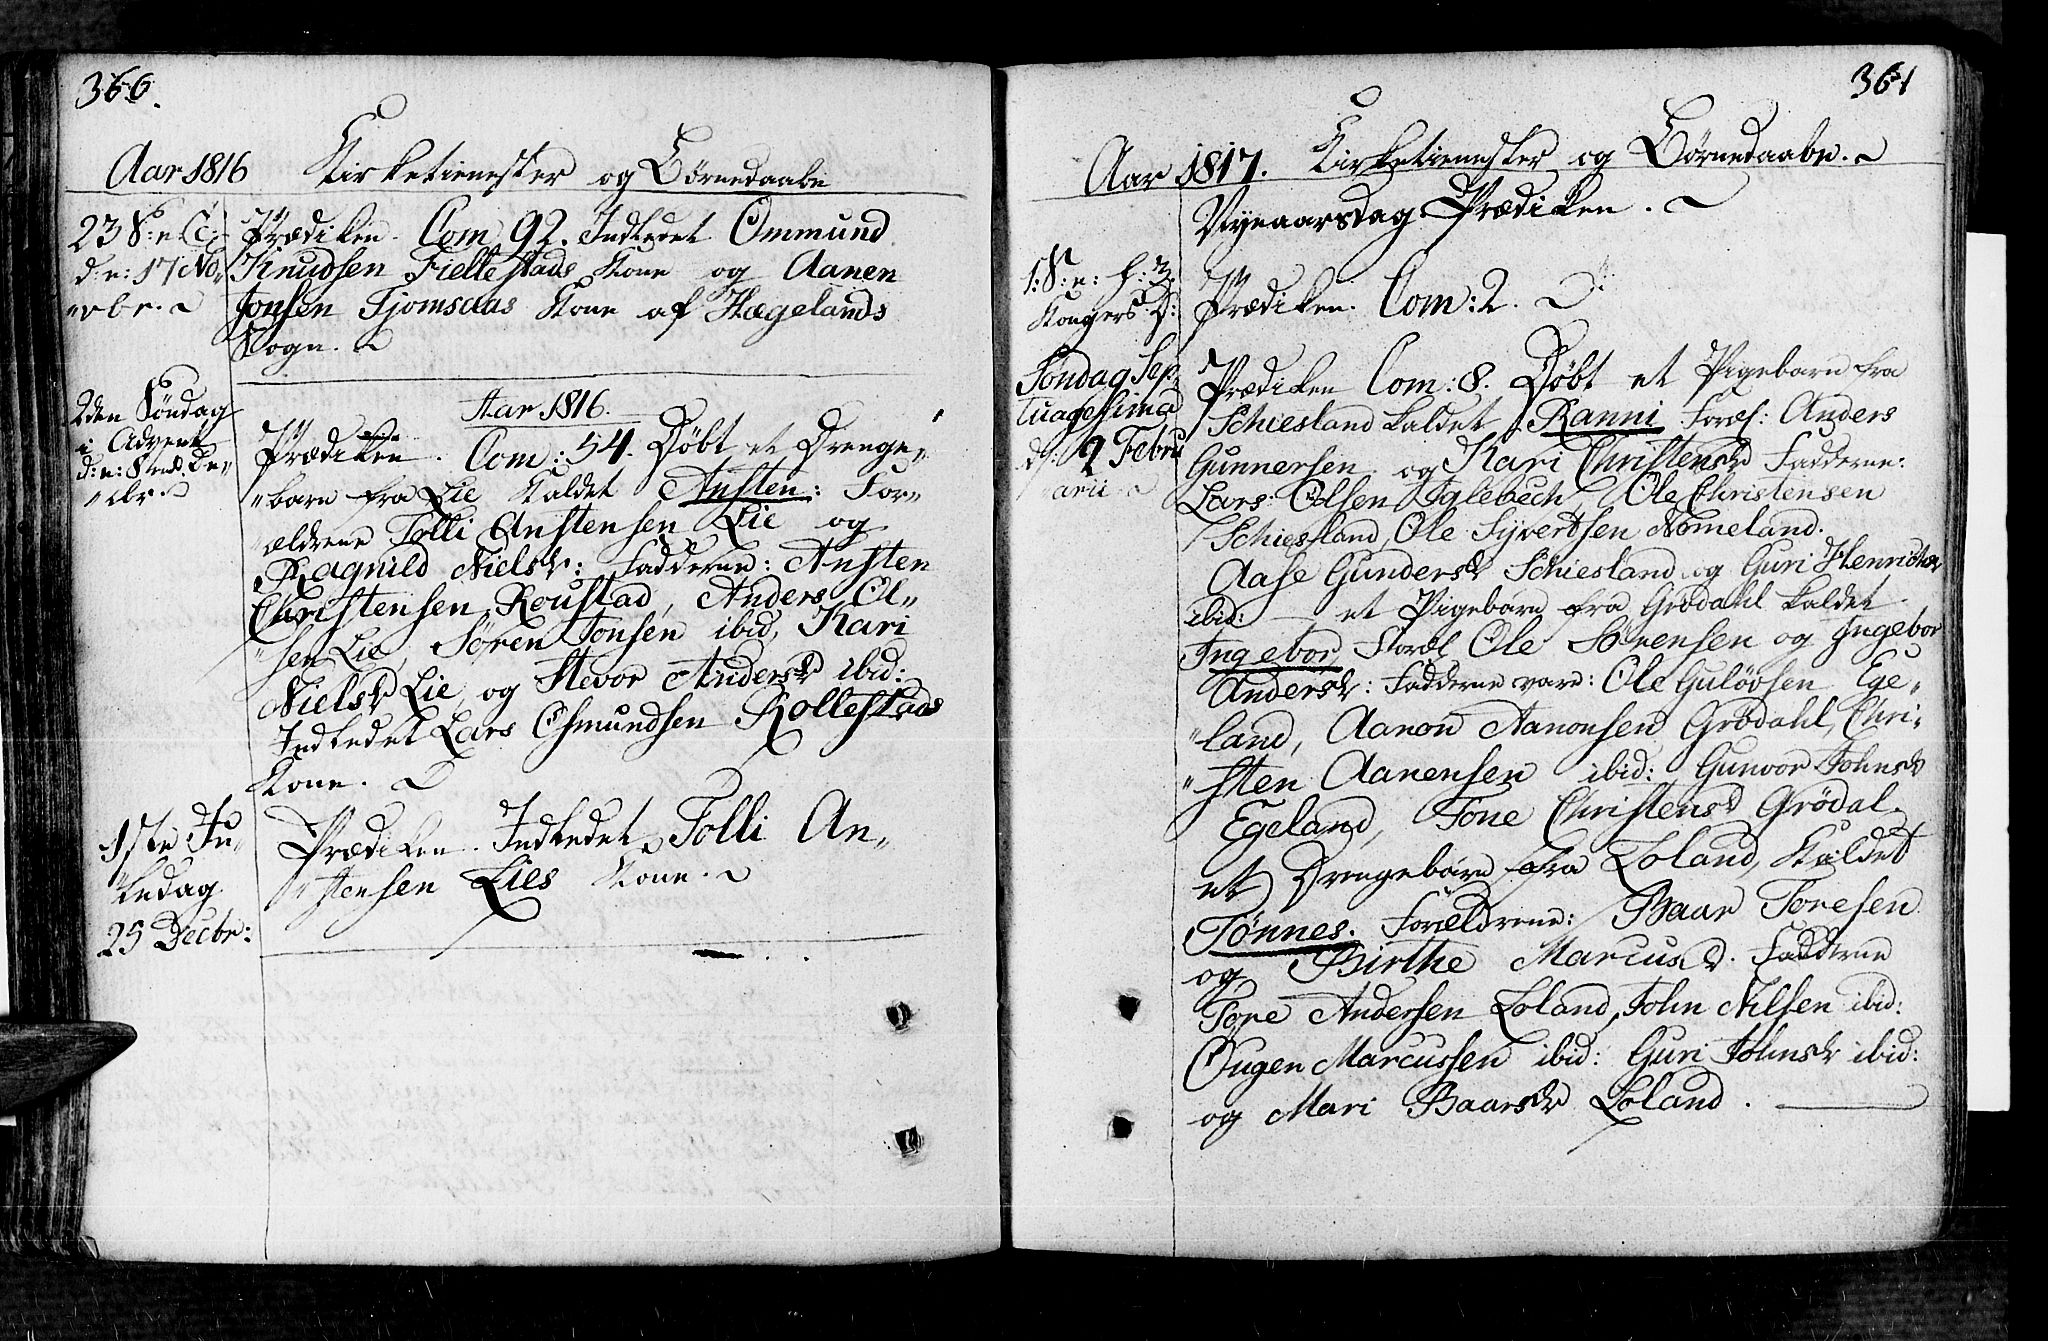 360.
Aar 1816 Kirketienester og Börnedaabe
23 S: e: Tr:
d: e: 17 No„
„vbr.
Prædiken. Com 92. Indledet Ommund
Knudsen Fiellestads Kone og Aanen
Jonsen Tjomsaas Kone af Hægelands
Sogn.
Aar 1816.
2den Söndag
i Advent
d: e: 8nd De„
„cbr.
Prædiken. Com: 54. Döbt et Drenge„
„barn fra Lie kaldet Ansten: For„
ældrene Tolli Anstensen Lie og
Ragnild Nielsdr: Fadderne: Ansten
Christensen Roustad, Anders Ol„
„sen Lie, Sören Jonsen ibid, Kari
Nielsdr Lie, og Sievor Andersdr ibid:
Indledet Lars Osmundsen Kollestads
Kone.
1ste Ju„
„ledag
25 Decbr:
Prædiken. Indledet Tolli An„
„stensen Lies Kone.
361
Aar 1817. Kirketienester og Börnedaabe.
Nyeaarsdag Prædiken.
1: S: e: h: 3
Kongers D:
Prædiken. Com: 2.
Söndag Sep„
tuagesima
d: 2 Febru
arii
Prædiken Com: 8. Döbt et Pigebarn fra
Schiesland kaldet Ranni. Foræl: Anders
Gunnersen og Kari Christensdr Fadderne:
Lars Olsen Iglebech, Ole Christensen
Schiesland, Ole Syvertsen Nomeland.
Aase Gundersdr Schiesland og Guri Henrichsdr
ibid: — et Pigebarn fra Grödahl kaldet
Ingebor, Foræl Ole Sörensen og Ingebor
Andersdr: Fadderne vare: Ole Gulövsen Ege„
„land, Aanon Aanonsen Grödahl, Chri„
„sten Aanensen ibid: Gunvor Johnsdr
Egeland, Tone Christensd Grödal.
et Drengebarn fra Loland, kaldet
Tönnes. Forældrene: Baar Toresen
og Birthe Marcusd. Fadderne
Tore Andersen Loland, John Nilsen ibid:
Ougen Marcussen ibid: Guri Johnsdr ibid:
og Mari Baarsdr Loland.